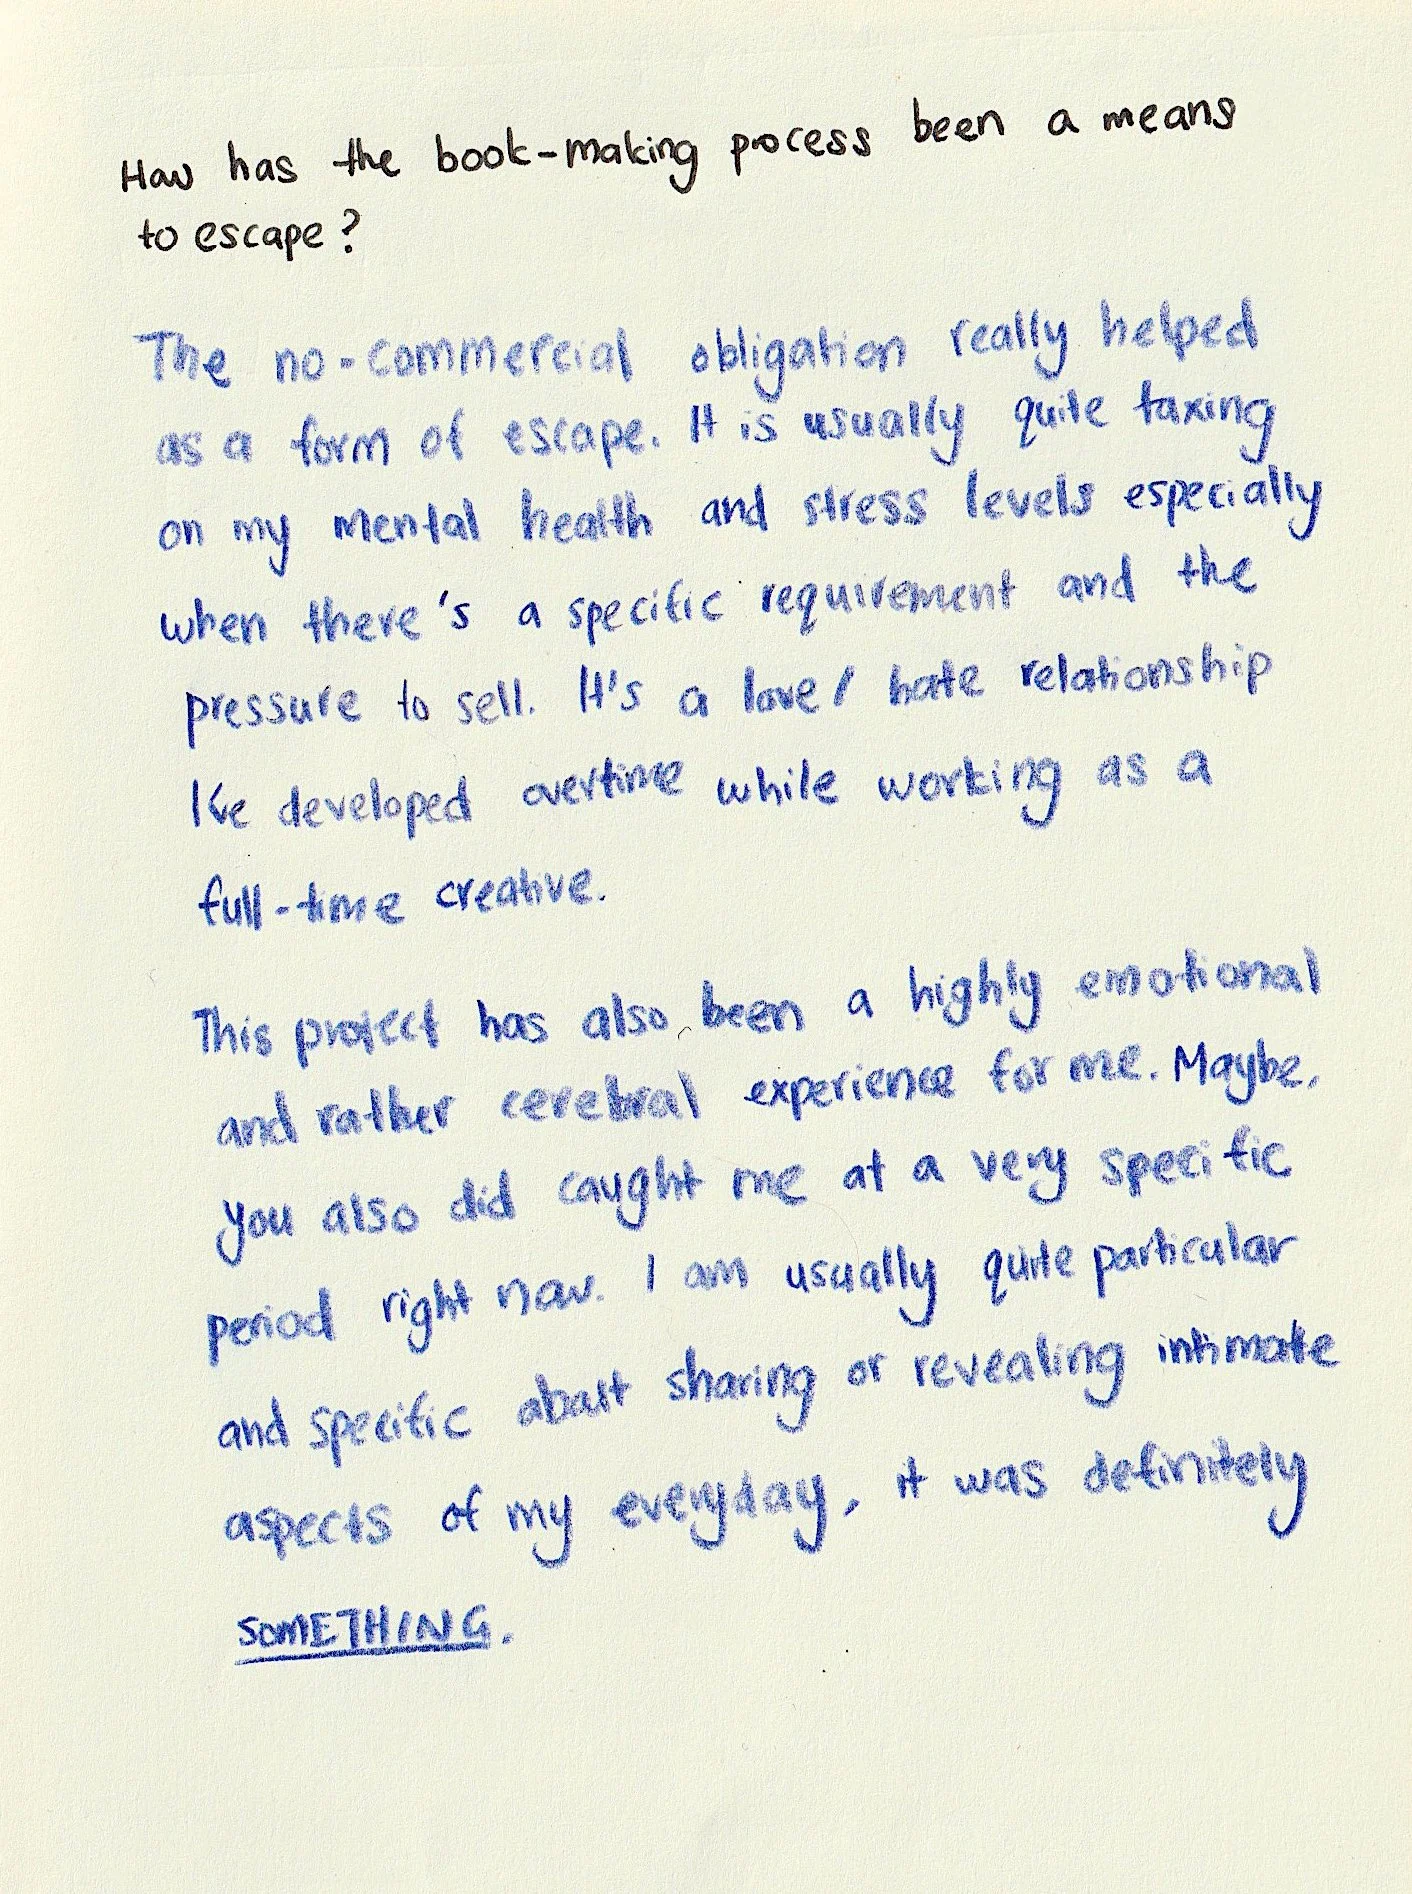 How has the book-making process been a means
to escape?
The no-commercial obligation really helped
as a form of escape. It is usually quite taxing
on my mental health and stress levels especially
when there's a specific requirement and the
pressure to sell. It's a love/ hate relationship
I've developed overtime while working as a
full-time creative.
This project has also been a highly emotional
and rather cerebral experience for me. Maybe,
you also did caught me at a very specific
period right now. I am usually quite particular
and specific about sharing or revealing intimate
aspects of my everyday, it was definitely
SOMETHING.